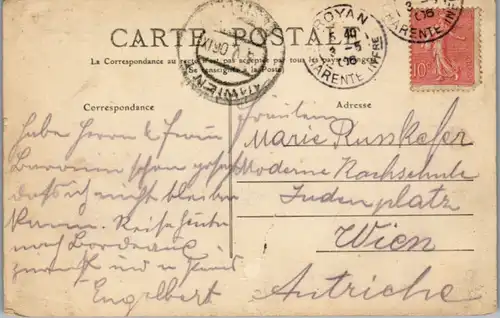 CARTE POSTALE
La Correspondance au recto n'est pas acceptée par tous les pays étrangers
Se renseigner à la Poste
ROYAN
3 - 5
06
CHARENTE INFRE
10c
Correspondance
Adresse
Habe Herrn & Frau
schon
dass ich nicht bleiben
kann. Reise heute
nach Bordeaux
zurück und
Engelbert
Fräulein
Marie Russkefer
Moderne Kochschule
Judenplatz
Wien
Autriche